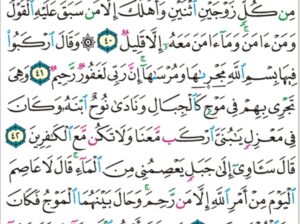 مِن كُلٍّ زَوْجَيْنِ ٱثْنَيْنِ وَأَهْلَكَ إِلَّا مَن سَبَقَ عَلَيْهِ ٱلْقَوْلُ
وَمَنْ ءَامَنَ وَمَآ ءَامَنَ مَعَهُۥٓ إِلَّا قَلِيلٌ ٤٠ ۞ وَقَالَ ٱرْكَبُوا۟
فِيهَا بِسْمِ ٱللَّهِ مَجْر۪ىٰهَا وَمُرْسَىٰهَآ إِنَّ رَبِّى لَغَفُورٌ رَّحِيمٌ ٤١ وَهِىَ
تَجْرِى بِهِمْ فِى مَوْجٍ كَٱلْجِبَالِ وَنَادَىٰ نُوحٌ ٱبْنَهُۥ وَكَانَ
فِى مَعْزِلٍ يَٰبُنَىَّ ٱرْكَب مَّعَنَا وَلَا تَكُن مَّعَ ٱلْكَٰفِرِينَ ٤٢
قَالَ سَـَٔاوِىٓ إِلَىٰ جَبَلٍ يَعْصِمُنِى مِنَ ٱلْمَآءِ قَالَ لَا عَاصِمَ
ٱلْيَوْمَ مِنْ أَمْرِ ٱللَّهِ إِلَّا مَن رَّحِمَ وَحَالَ بَيْنَهُمَا ٱلْمَوْجُ فَكَانَ